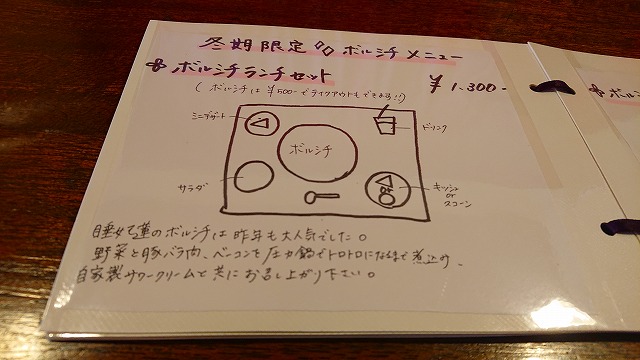 冬期限定 ボルシチメニュー
ボルシチランチセット ¥1,300-
(ボルシチは¥500-でテイクアウトもできます!!)
ミニデザート
ドリンク
ボルシチ
サラダ
キッシュ
or
スコーン
or
睡蓮のボルシチは昨年も大人気でした。
野菜と豚バラ肉、ベーコンを圧力鍋でトロトロになるまで煮込み、
自家製サワークリームと共にお召し上がり下さい。
ボルシ